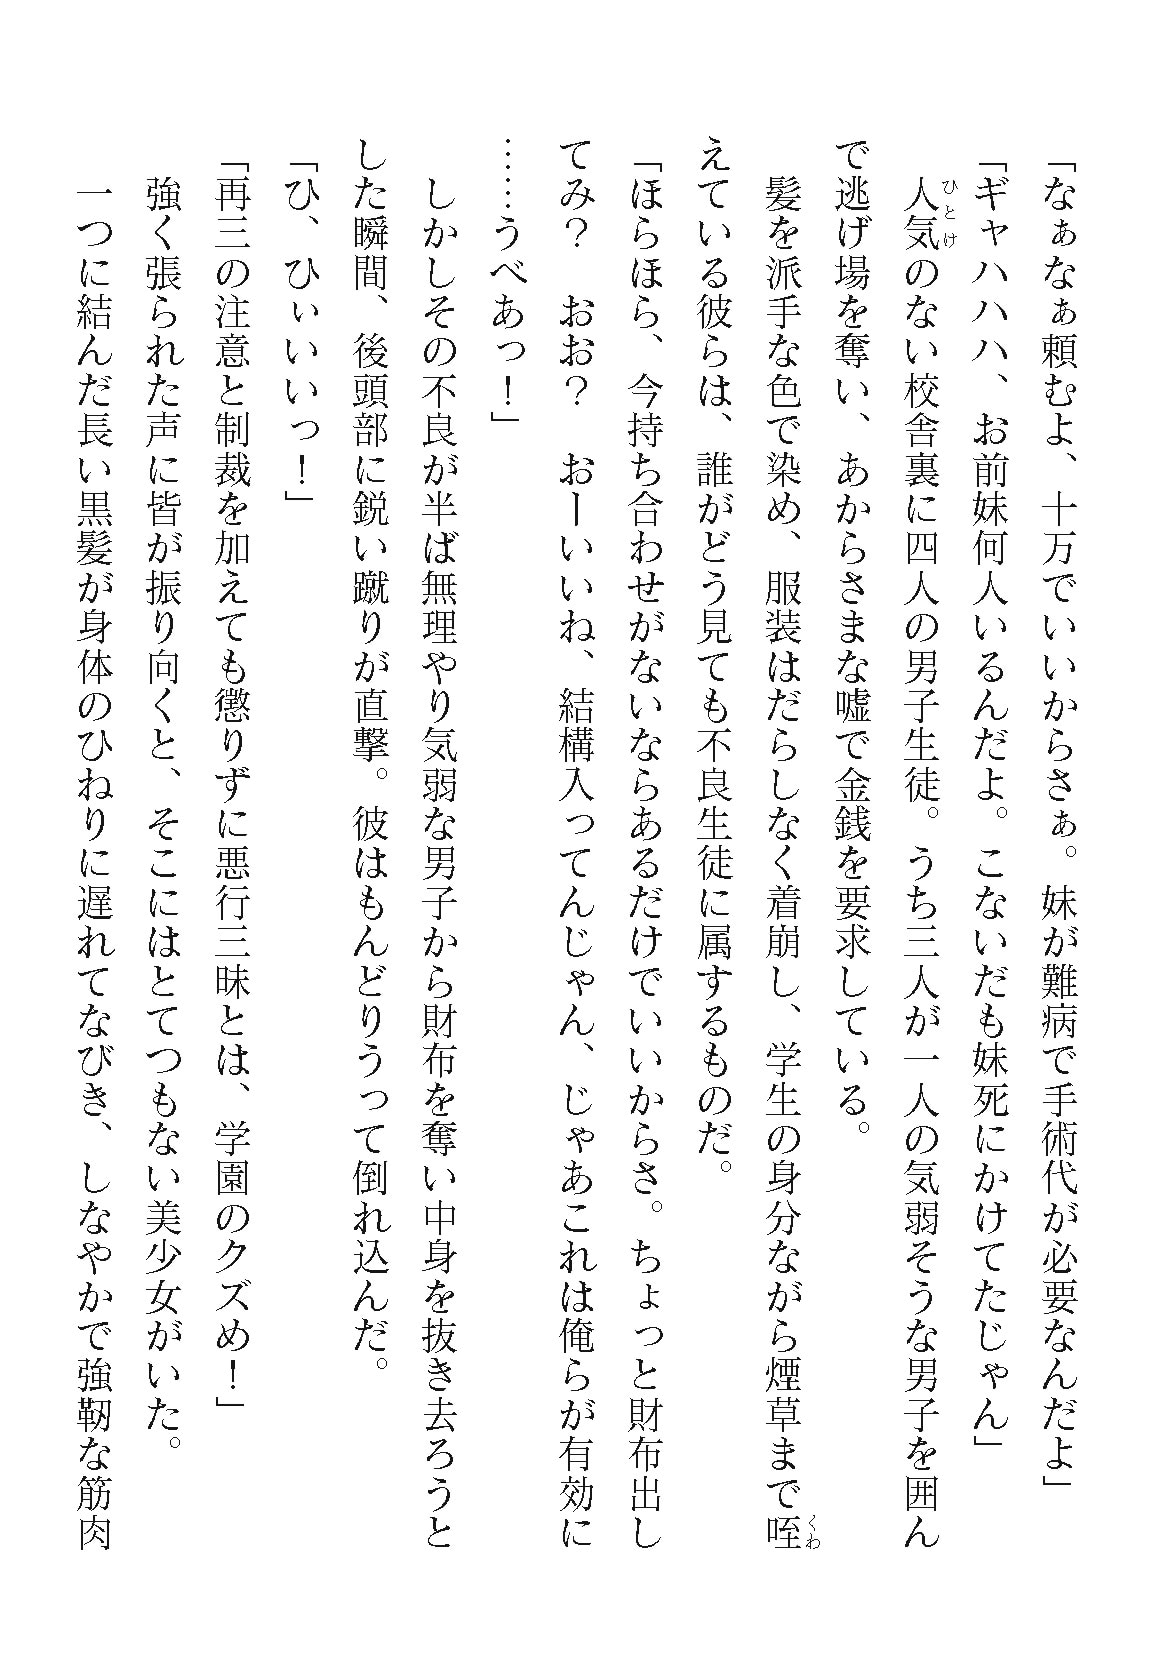 「なぁなぁ頼むよ、十万でいいからさぁ。妹が難病で手術代が必要なんだよ」
「ギャハハハ、お前妹何人いるんだよ。こないだも妹死にかけてたじゃん」
人気のない校舎裏に四人の男子生徒。うち三人が一人の気弱そうな男子を囲ん
ひとけ
で逃げ場を奪い、あからさまな嘘で金銭を要求している。
髪を派手な色で染め、服装はだらしなく着崩し、学生の身分ながら煙草まで咥
くわ
えている彼らは、誰がどう見ても不良生徒に属するものだ。
「ほらほら、今持ち合わせがないならあるだけでいいからさ。ちょっと財布出し
てみ？　おお？　おーいいね、結構入ってんじゃん、じゃあこれは俺らが有効に
……うべあっ！」
しかしその不良が半ば無理やり気弱な男子から財布を奪い中身を抜き去ろうと
した瞬間、後頭部に鋭い蹴りが直撃。彼はもんどりうって倒れ込んだ。
「ひ、ひぃいいっ！」
「再三の注意と制裁を加えても懲りずに悪行三昧とは、学園のクズめ！」
強く張られた声に皆が振り向くと、そこにはとてつもない美少女がいた。
一つに結んだ長い黒髪が身体のひねりに遅れてなびき、しなやかで強靭な筋肉